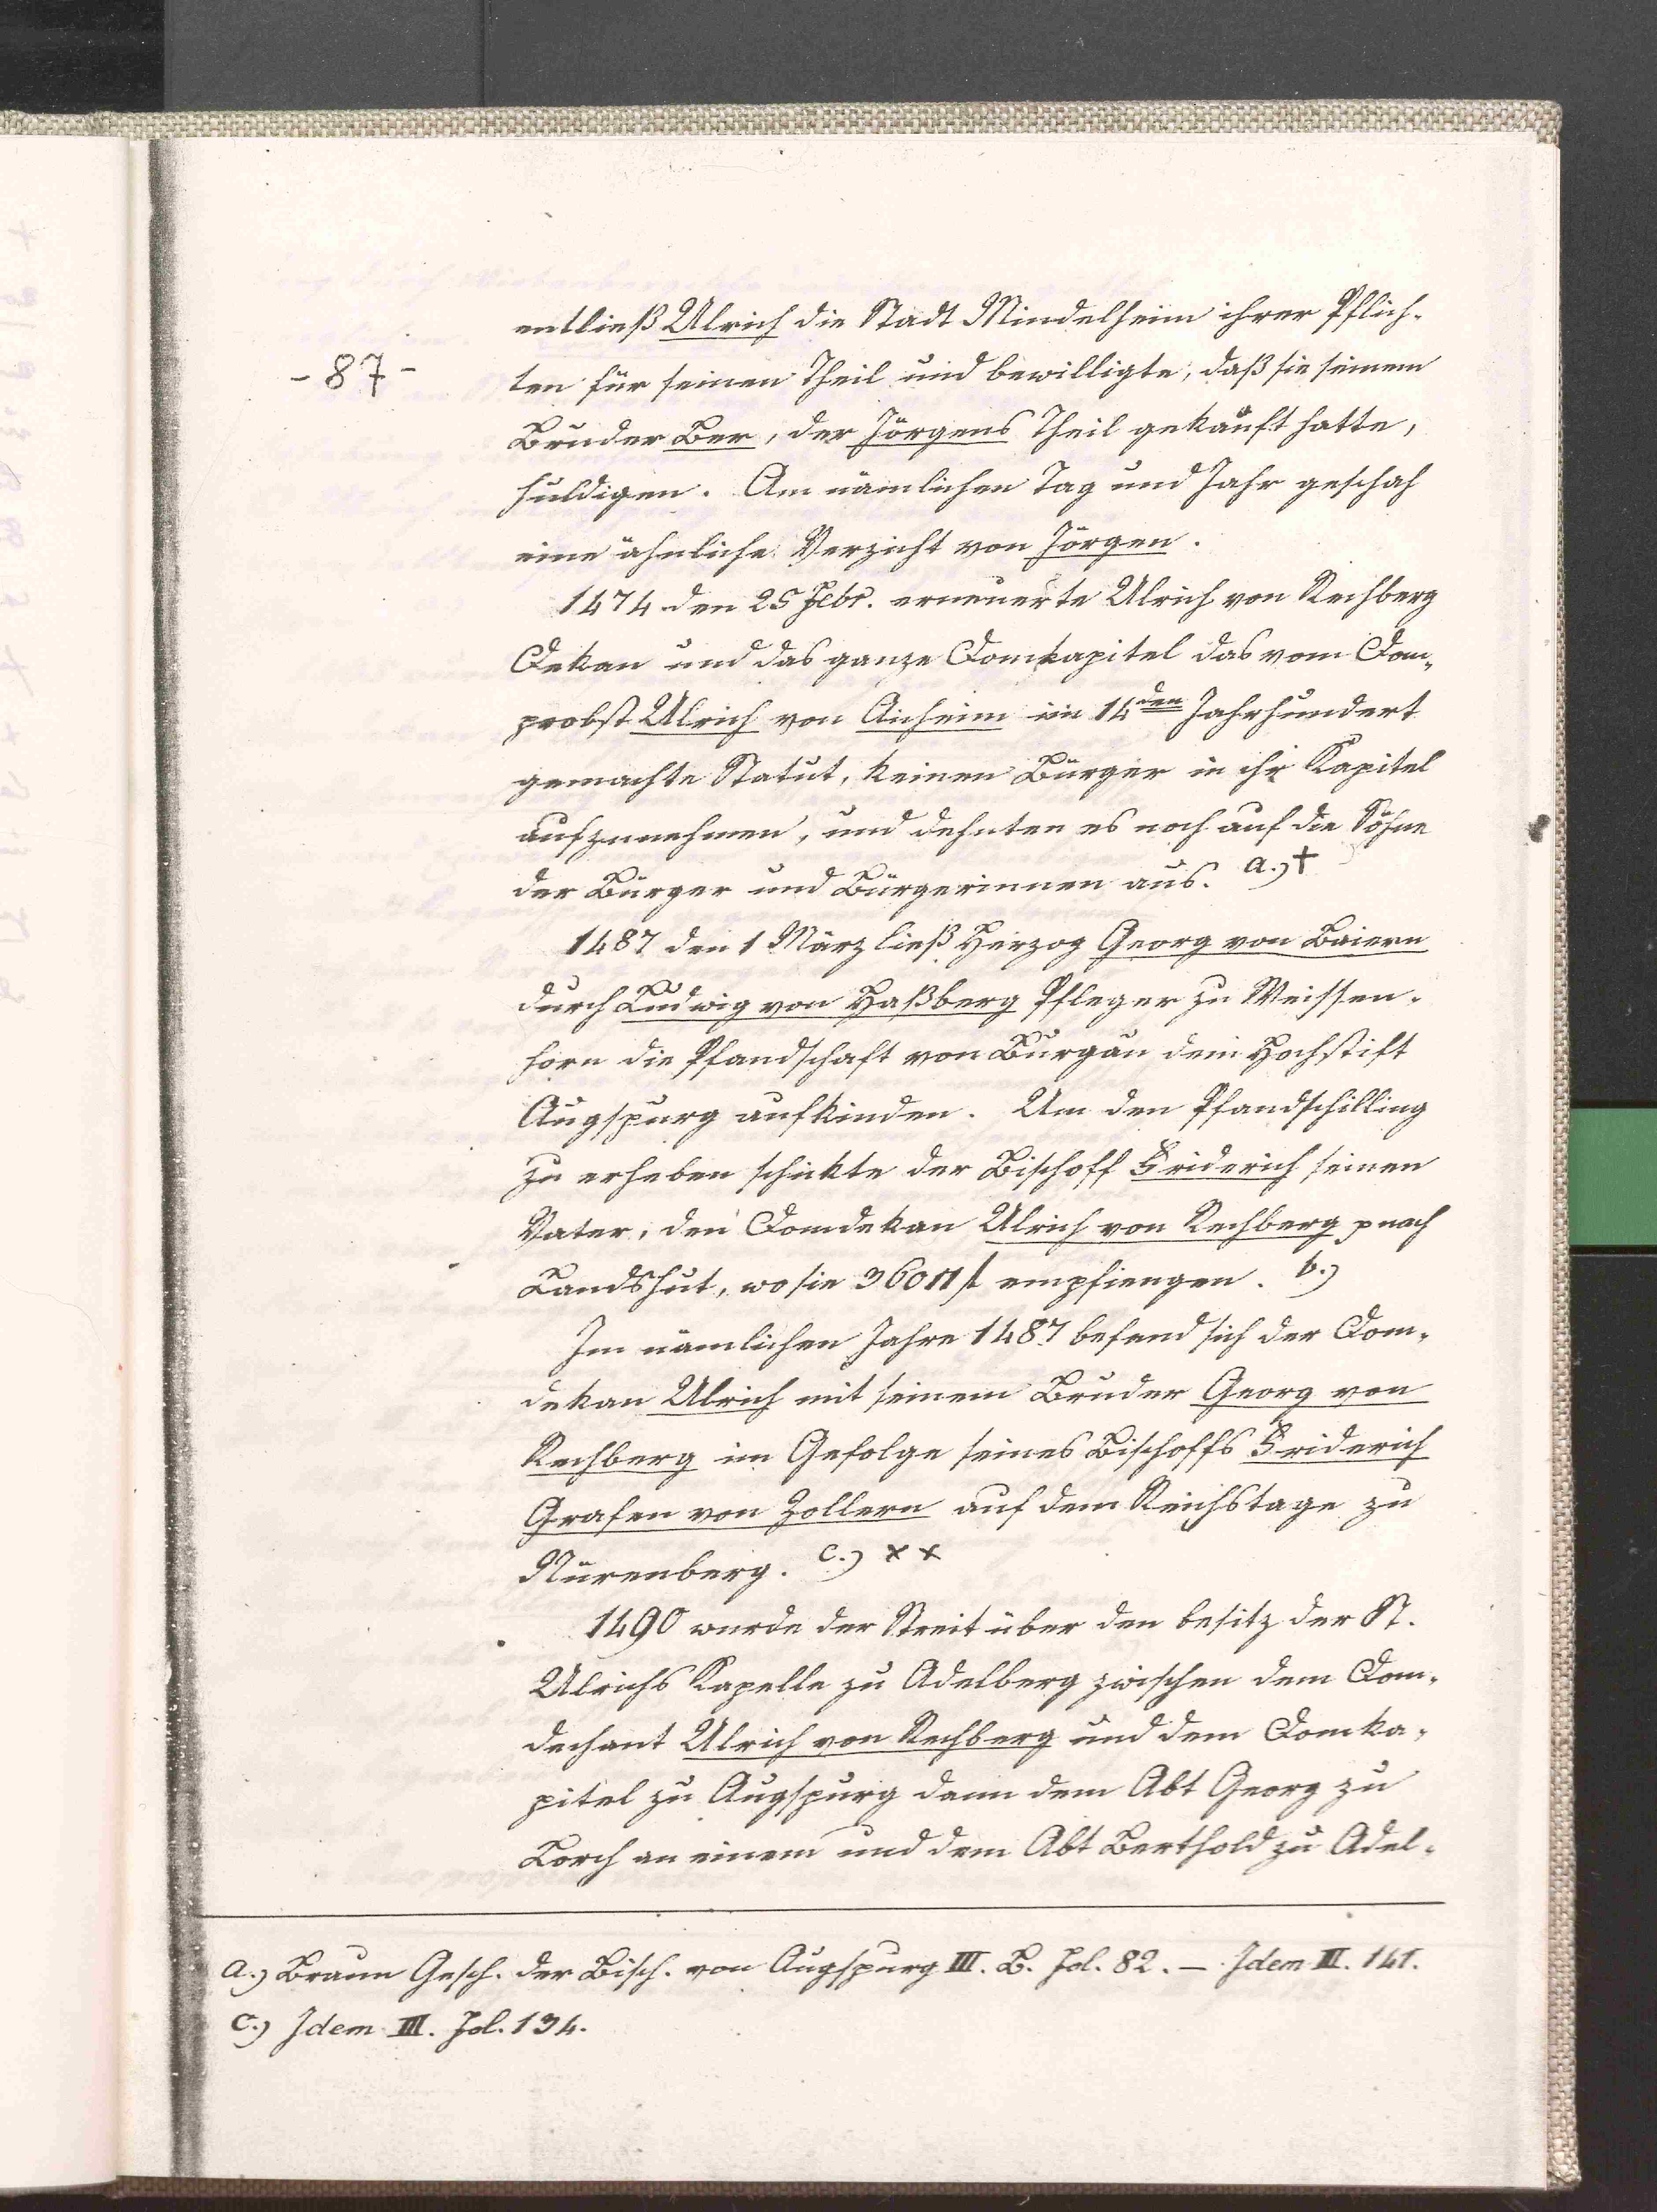 entließ Ulrich die Stadt Mindelheim ihrer Pflich-
- 87 -
ten für seinen Theil und bewilligte, daß sie seinem
Bruder Ber, der Jörgens Theil gekauft hatte,
huldigen. Am nämlichen Tag und Jahr geschah
eine ähnliche Verzicht von Jörgen.
1474 den 25 Febr. erneuerte Ulrich von Rechberg
Dekan und das ganze Domkapitel das vom Dom-
probst Ulrich von Aicheim im 14den Jahrhundert
gemachte Statut, keinen Bürger in ihr Kapitel
aufzunehmen, und dehnten es noch auf die Söhne
der Bürger und Bürgerinnen aus. a.) †
1487 den 1 März ließ Herzog Georg von Baiern
durch Ludwig von Haßberg Pfleger zu Weissen-
horn die Pfandschaft von Burgau dem Hochstift
Augspurg aufkinden. Um den Pfandschilling
zu erheben schickte der Bischoff Friderich seinen
Vater, den Domdekan Ulrich von Rechberg p nach
Landshut, wo sie empfiengen. b.)
Im nämlichen Jahre 1487 befand sich der Dom-
dekan Ulrich mit seinem Bruder Georg von
Rechberg im Gefolge seines Bischoffs Friderich
Grafen von Zollern auf dem Reichstage zu
Nürenberg. c.) x x
1490 wurde der Streit über den besitz der St.
Ulrichs Kapelle zu Adelberg zwischen dem Dom-
dechant Ulrich von Rechberg und dem Domka-
pitel zu Augspurg dann dem Abt Georg zu
Lorch an einem und dem Abt Berthold zu Adel-
a.) Braun Gesch. der Bisch. von Augspurg III. B. Fol. 82. — Idem III. 141.
c.) Idem III. Fol. 134.